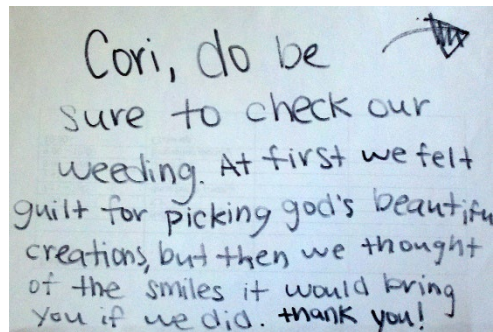 Cori, do be
sure to check our
weeding. At first we felt
guilt for picking god's beautiful
creations, but then we thought
of the smiles it would bring
you if we did. thank you!